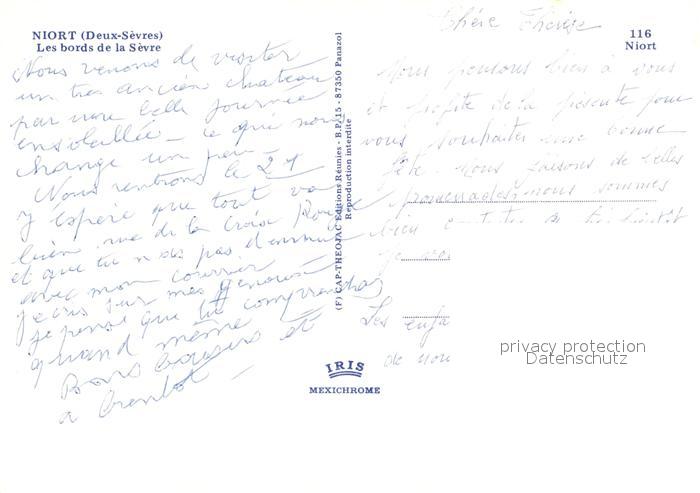 NIORT (Deux-Sèvres)
Les bords de la Sèvre
Nous venons de visiter
un tres ancien chateau
par une belle journée
ensoleillée - ce qui nous
change un peu -
Nous rentrons le 21
J'espère que tout va
bien rue de la Croix Rouge
et que tu n'as pas d'ennuis
avec mon courrier
J'ecris sur mes genoux
je pense que tu comprendras
quand même
Bons baisers et
a bientot -
(F) CAP-THEOJAC Editions Réunies - B.P. 15 - 87350 Panazol
Reproduction interdite
IRIS
MEXICHROME
116
Niort
Chére Thérèse
Nous pensons bien à vous
et profite de la présente pour
vous souhaiter une bonne
fête Nous faisons de belles
promenades nous sommes
bien
Les enfa
de nou
privacy protection
Datenschutz